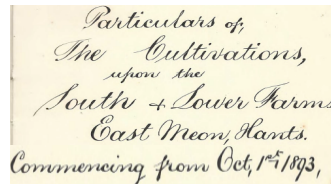 Particulars of,
The Cultivations,
upon the
South & Lower Farms
East Meon, Hants.
Commencing from Oct, 1st 1893,